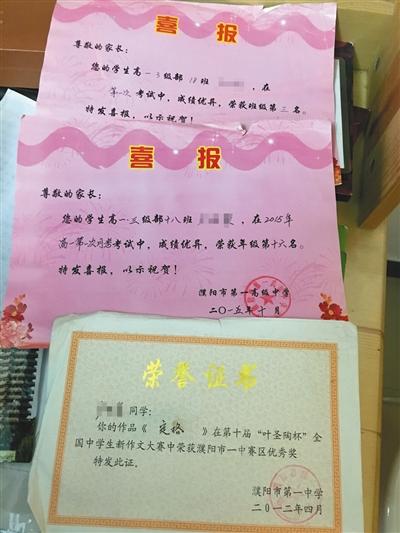 喜报
尊敬的家长：
您的学生高一·三级部18班，在
第一次考试中，成绩优异，荣获班级第三名。
特发喜报，以示祝贺！
喜报
尊敬的家长：
您的学生高一·三级部十八班，在2015年
高一第一次月考考试中，成绩优异，荣获年级第十六名。
特发喜报，以示祝贺！
濮阳市第一高级中学
二〇一五年十月
荣誉证书
同学：
你的作品《定格》在第十届“叶圣陶杯”全
国中学生新作文大赛中荣获濮阳市一中赛区优秀奖
特发此证。
濮阳市第一中学
二〇一二年四月